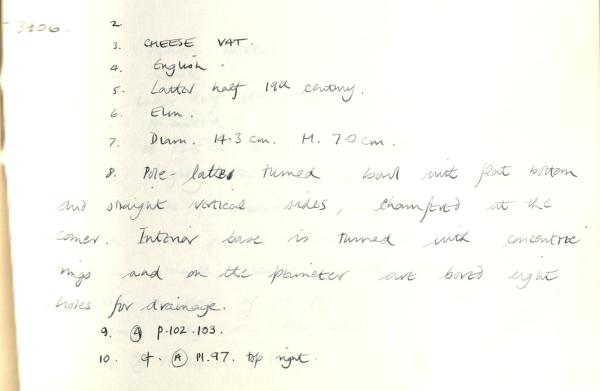 3106. 2
3. CHEESE VAT.
4. English.
5. Latter half 19th century.
6. Elm.
7. Diam. 14.3 cm. H. 7.0 cm.
8. Pole-lathe turned bowl with flat bottom
and straight vertical sides, chamfered at the
corner. Interior base is turned with concentric
rings and on the perimeter are bored eight
holes for drainage.
9. (A) p.102.103.
10. cf. (A) Pl.97. top right.